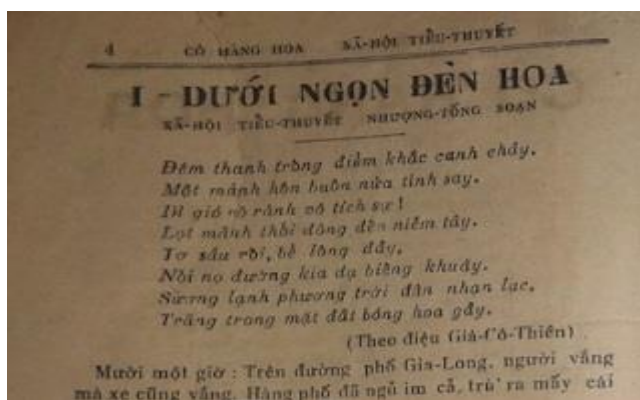 4 CÔ HÀNG HOA XÃ-HỘI TIỂU-THUYẾT
I - DƯỚI NGỌN ĐÈN HOA
XÃ-HỘI TIỂU-THUYẾT NHƯỢNG-TỐNG SOẠN
Đêm thanh trống điểm khắc canh chầy.
Một mảnh hồn buồn nửa tỉnh say.
Dì gió rõ rảnh vô tích sự!
Lọt mành thổi động đèn niềm tây.
Tơ sầu rối, bể lòng đầy.
Nỗi nọ đường kia dạ biếng khuây.
Sương lạnh phương trời đàn nhạn lạc,
Trăng trong mặt đất bóng hoa gầy.
(Theo điệu Giá-Cô-Thiên)
Mười một giờ: Trên đường phố Gia-Long, người vắng
mà xe cũng vắng. Hàng phố đã ngủ im cả, trừ ra mấy cái